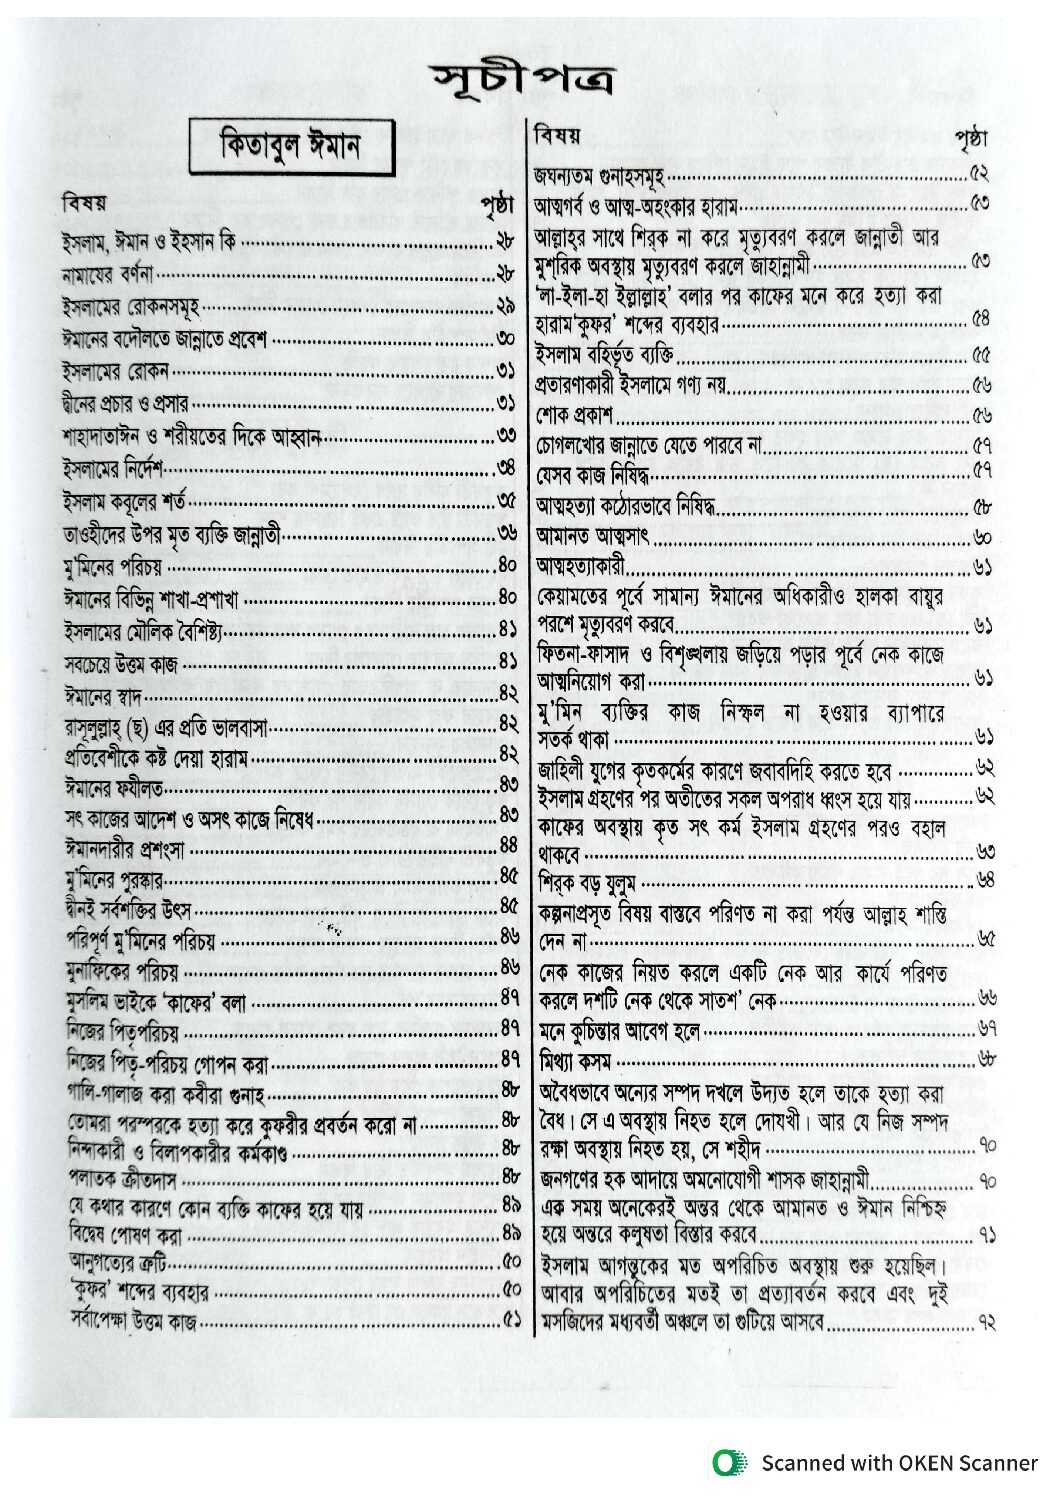 সূচীপত্র
কিতাবুল ঈমান
বিষয় পৃষ্ঠা
ইসলাম, ঈমান ও ইহসান কি ........ ২৮
নামাযের বর্ণনা ........ ২৮
ইসলামের রোকনসমূহ ........ ২৯
ঈমানের বদৌলতে জান্নাতে প্রবেশ ........ ৩০
ইসলামের রোকন ........ ৩১
দ্বীনের প্রচার ও প্রসার ........ ৩১
শাহাদাতাঈন ও শরীয়তের দিকে আহ্বান ........ ৩৩
ইসলামের নির্দেশ ........ ৩৪
ইসলাম কবূলের শর্ত ........ ৩৫
তাওহীদের উপর মৃত ব্যক্তি জান্নাতী ........ ৩৬
মু'মিনের পরিচয় ........ ৪০
ঈমানের বিভিন্ন শাখা-প্রশাখা ........ ৪০
ইসলামের মৌলিক বৈশিষ্ট্য ........ ৪১
সবচেয়ে উত্তম কাজ ........ ৪১
ঈমানের স্বাদ ........ ৪২
রাসূলুল্লাহ্ (ছ) এর প্রতি ভালবাসা ........ ৪২
প্রতিবেশীকে কষ্ট দেয়া হারাম ........ ৪২
ঈমানের ফযীলত ........ ৪৩
সৎ কাজের আদেশ ও অসৎ কাজে নিষেধ ........ ৪৩
ঈমানদারীর প্রশংসা ........ ৪৪
মু'মিনের পুরস্কার ........ ৪৫
দ্বীনই সর্বশক্তির উৎস ........ ৪৫
পরিপূর্ণ মু'মিনের পরিচয় ........ ৪৬
মুনাফিকের পরিচয় ........ ৪৬
মুসলিম ভাইকে ‘কাফের’ বলা ........ ৪৭
নিজের পিতৃপরিচয় ........ ৪৭
নিজের পিতৃ-পরিচয় গোপন করা ........ ৪৭
গালি-গালাজ করা কবীরা গুনাহ ........ ৪৮
তোমরা পরস্পরকে হত্যা করে কুফরীর প্রবর্তন করো না ........ ৪৮
নিন্দাকারী ও বিলাপকারীর কর্মকাণ্ড ........ ৪৮
পলাতক ক্রীতদাস ........ ৪৮
যে কথার কারণে কোন ব্যক্তি কাফের হয়ে যায় ........ ৪৯
বিদ্বেষ পোষণ করা ........ ৪৯
আনুগত্যের ত্রুটি ........ ৫০
‘কুফর’ শব্দের ব্যবহার ........ ৫০
সর্বাপেক্ষা উত্তম কাজ ........ ৫১
বিষয় পৃষ্ঠা
জঘন্যতম গুনাহসমূহ ........ ৫২
আত্মগর্ব ও আত্ম-অহংকার হারাম ........ ৫৩
আল্লাহ্‌র সাথে শির্‌ক না করে মৃত্যুবরণ করলে জান্নাতী আর
মুশ্‌রিক অবস্থায় মৃত্যুবরণ করলে জাহান্নামী ........ ৫৩
‘লা-ইলা-হা ইল্লাল্লাহ’ বলার পর কাফের মনে করে হত্যা করা
হারাম‘কুফর’ শব্দের ব্যবহার ........ ৫৪
ইসলাম বহির্ভূত ব্যক্তি ........ ৫৫
প্রতারণাকারী ইসলামে গণ্য নয় ........ ৫৬
শোক প্রকাশ ........ ৫৬
চোগলখোর জান্নাতে যেতে পারবে না ........ ৫৭
যেসব কাজ নিষিদ্ধ ........ ৫৭
আত্মহত্যা কঠোরভাবে নিষিদ্ধ ........ ৫৮
আমানত আত্মসাৎ ........ ৬০
আত্মহত্যাকারী ........ ৬১
কেয়ামতের পূর্বে সামান্য ঈমানের অধিকারীও হালকা বায়ূর
পরশে মৃত্যুবরণ করবে ........ ৬১
ফিতনা-ফাসাদ ও বিশৃঙ্খলায় জড়িয়ে পড়ার পূর্বে নেক কাজে
আত্মনিয়োগ করা ........ ৬১
মু'মিন ব্যক্তির কাজ নিস্ফল না হওয়ার ব্যাপারে
সতর্ক থাকা ........ ৬১
জাহিলী যুগের কৃতকর্মের কারণে জবাবদিহি করতে হবে ........ ৬২
ইসলাম গ্রহণের পর অতীতের সকল অপরাধ ধ্বংস হয়ে যায় ........ ৬২
কাফের অবস্থায় কৃত সৎ কর্ম ইসলাম গ্রহণের পরও বহাল
থাকবে ........ ৬৩
শির্‌ক বড় যুলুম ........ ৬৪
কল্পনাপ্রসূত বিষয় বাস্তবে পরিণত না করা পর্যন্ত আল্লাহ শাস্তি
দেন না ........ ৬৫
নেক কাজের নিয়ত করলে একটি নেক আর কার্যে পরিণত
করলে দশটি নেক থেকে সাতশ’ নেক ........ ৬৬
মনে কুচিন্তার আবেগ হলে ........ ৬৭
মিথ্যা কসম ........ ৬৮
অবৈধভাবে অন্যের সম্পদ দখলে উদ্যত হলে তাকে হত্যা করা
বৈধ। সে এ অবস্থায় নিহত হলে দোযখী। আর যে নিজ সম্পদ
রক্ষা অবস্থায় নিহত হয়, সে শহীদ ........ ৭০
জনগণের হক আদায়ে অমনোযোগী শাসক জাহান্নামী ........ ৭০
এক সময় অনেকেরই অন্তর থেকে আমানত ও ঈমান নিশ্চিহ্ন
হয়ে অন্তরে কলুষতা বিস্তার করবে ........ ৭১
ইসলাম আগন্তুকের মত অপরিচিত অবস্থায় শুরু হয়েছিল।
আবার অপরিচিতের মতই তা প্রত্যাবর্তন করবে এবং দুই
মসজিদের মধ্যবর্তী অঞ্চলে তা গুটিয়ে আসবে ........ ৭২
Scanned with OKEN Scanner